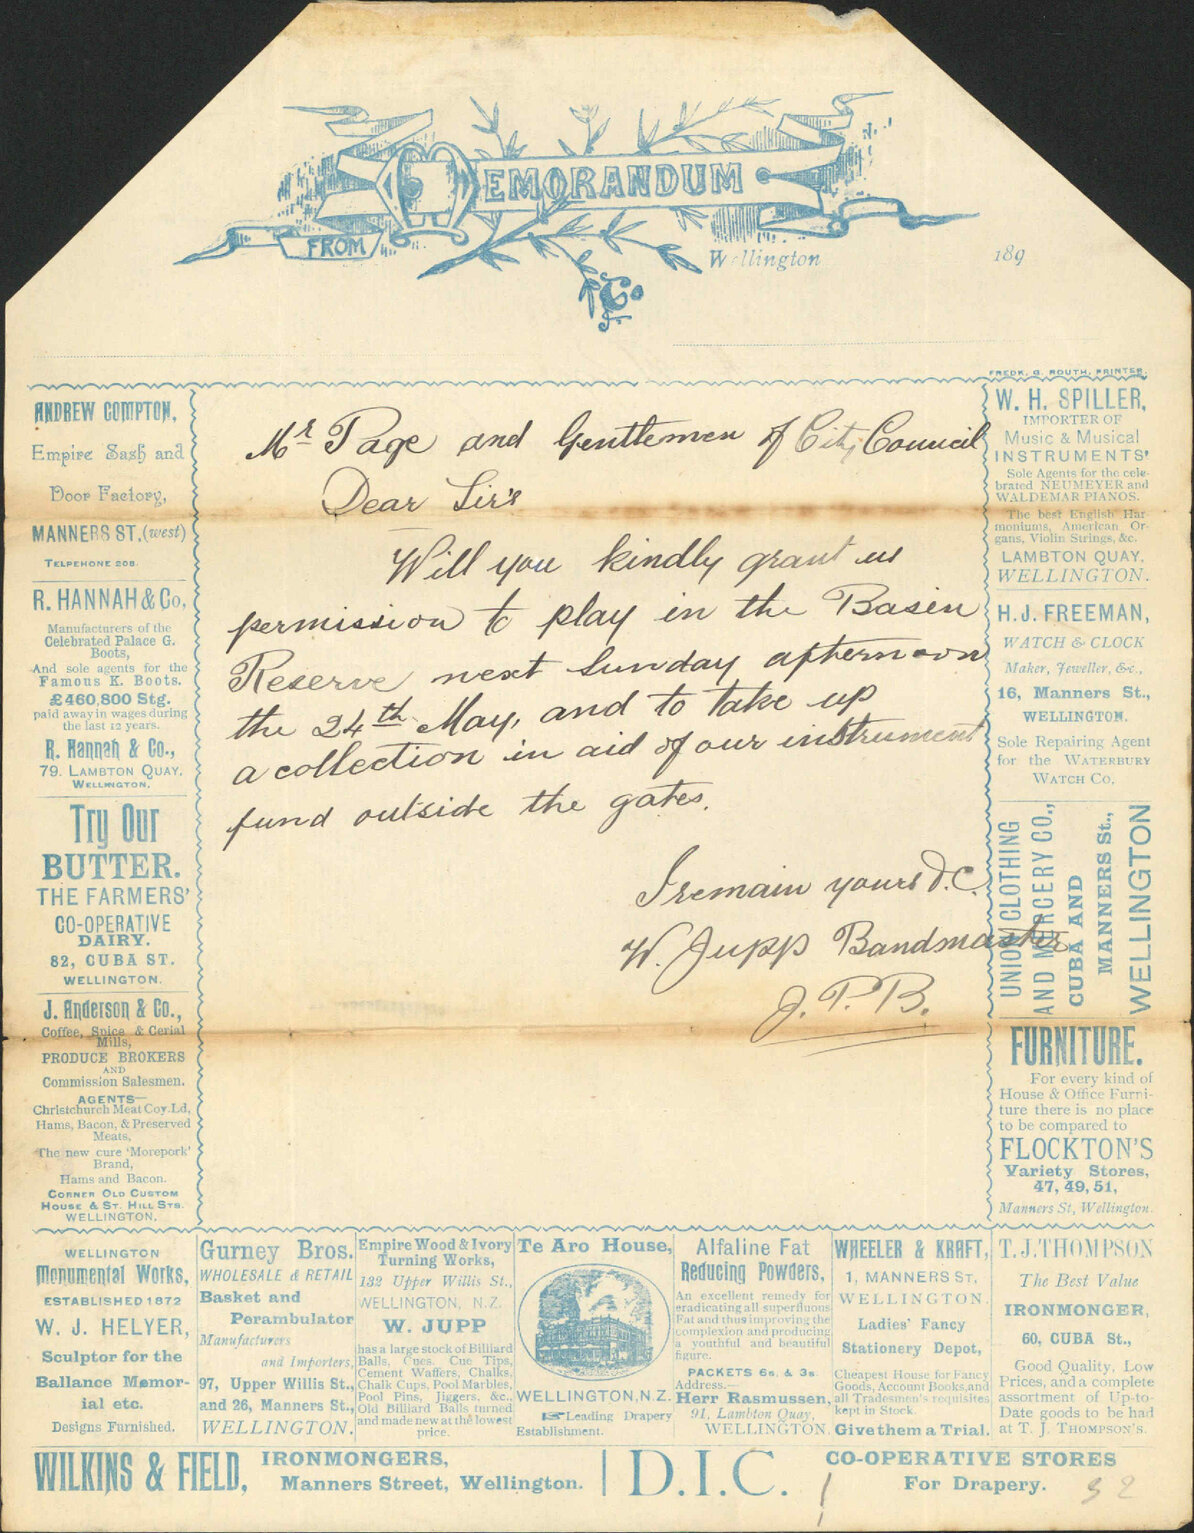 MEMORANDUM
FROM
& Co
Wellington 189
FREDK. G. ROUTH, PRINTER.
Mr Page and Gentlemen of City Council
Dear Sir's
Will you kindly grant us
permission to play in the Basin
Reserve next Sunday afternoon
the 24th May, and to take up
a collection in aid of our instrument
fund outside the gates.
I remain yours &.C.
W. Jupp Bandmaster
J. P. B.
ANDREW COMPTON,
Empire Sash and
Door Factory,
MANNERS ST. (west)
TELPEHONE 208.
R. HANNAH & Co,
Manufacturers of the
Celebrated Palace G.
Boots,
And sole agents for the
Famous K. Boots.
£460,800 Stg.
paid away in wages during
the last 12 years.
R. Hannah & Co.,
79. LAMBTON QUAY,
WELLINGTON.
Try Our
BUTTER.
THE FARMERS'
CO-OPERATIVE
DAIRY.
82, CUBA ST.
WELLINGTON.
J. Anderson & Co.,
Coffee, Spice & Cerial
Mills,
PRODUCE BROKERS
AND
Commission Salesmen.
AGENTS—
Christchurch Meat Coy. Ld,
Hams, Bacon, & Preserved
Meats,
The new cure 'Morepork'
Brand,
Hams and Bacon.
CORNER OLD CUSTOM
HOUSE & ST. HILL STS.
WELLINGTON.
W. H. SPILLER,
IMPORTER OF
Music & Musical
INSTRUMENTS'
Sole Agents for the cele-
brated NEUMEYER and
WALDEMAR PIANOS.
The best English Har
moniums, American Or-
gans, Violin Strings, &c.
LAMBTON QUAY.
WELLINGTON.
H. J. FREEMAN,
WATCH & CLOCK
Maker, Jeweller, &c.,
16, Manners St.,
WELLINGTON.
Sole Repairing Agent
for the WATERBURY
WATCH CO.
UNION CLOTHING
AND MERCERY CO.,
CUBA AND
MANNERS St.,
WELLINGTON
FURNITURE.
For every kind of
House & Office Furni-
ture there is no place
to be compared to
FLOCKTON'S
Variety Stores,
47, 49, 51,
Manners St, Wellington.
WELLINGTON
Monumental Works,
ESTABLISHED 1872
W. J. HELYER,
Sculptor for the
Ballance Memor-
ial etc.
Designs Furnished.
Gurney Bros.
WHOLESALE & RETAIL
Basket and
Perambulator
Manufacturers
and Importers,
97, Upper Willis St.,
and 26, Manners St.,
WELLINGTON.
Empire Wood & Ivory
Turning Works,
132 Upper Willis St.,
WELLINGTON, N.Z.
W. JUPP
has a large stock of Billiard
Balls, Cues, Cue Tips,
Cement Waffers, Chalks,
Chalk Cups, Pool Marbles,
Pool Pins, Jiggers, &c.,
Old Billiard Balls turned
and made new at the lowest
price.
Te Aro House,
WELLINGTON, N.Z.
Leading Drapery
Establishment.
Alfaline Fat
Reducing Powders,
An excellent remedy for
eradicating all superfluous
Fat and thus improving the
complexion and producing
a youthful and beautiful
figure.
PACKETS 6s. & 3s.
Address.—
Herr Rasmussen,
91, Lambton Quay,
WELLINGTON.
WHEELER & KRAFT,
1, MANNERS ST.
WELLINGTON.
Ladies' Fancy
Stationery Depot,
Cheapest House for Fancy
Goods, Account Books, and
all Tradesmen's requisites
kept in Stock.
Give them a Trial.
T. J. THOMPSON
The Best Value
IRONMONGER,
60, CUBA St.,
Good Quality, Low
Prices, and a complete
assortment of Up-to-
Date goods to be had
at T. J. THOMPSON'S.
WILKINS & FIELD,
IRONMONGERS,
Manners Street, Wellington.
D.I.C.
CO-OPERATIVE STORES
For Drapery.
32